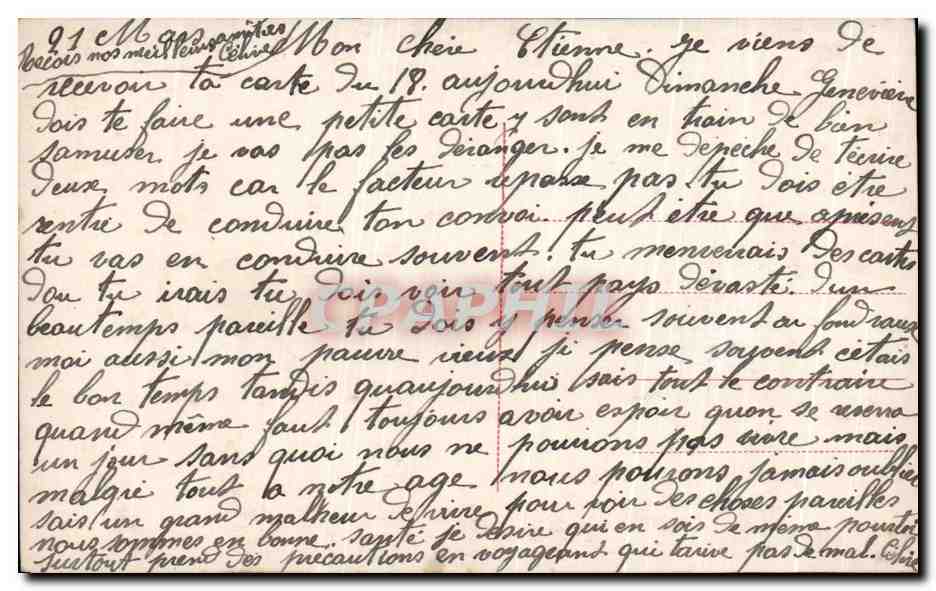 21 Mars
Reçois nos meilleurs amitiés
Céline
Mon chère Etienne. je viens de
recevoir ta carte du 18. aujourdhui Dimanche Geneviève
dois te faire une petite carte y sont en train de bien
samuser je vas pas les déranger. je me dépèche de técrire
deux mots car le facteur repasse pas. tu dois être
rentré de conduire ton convoi. peut être que apresent
tu vas en conduire souvent. tu menverrais des cartes
dou tu irais tu dois voir tout pays dévasté. dun
beau temps pareille tu dois y penser souvent au fond
moi aussi mon pauvre vieux ji pense souvent cétais
le bon temps tandis quaujourdhui sais tout le contraire
quand même faut toujours avoir espoir quon se reverra
un jour sans quoi nous ne pouvons pas vivre mais
malgré tout a notre age nous pouvons jamais oublier
sais un grand malheur de vivre pour voir des choses pareilles
nous sommes en bonne santé je désire qui en sois de même pour toi
surtout prend des précautions en voyageant qui tarive pas de mal. Céline
CPAPHIL